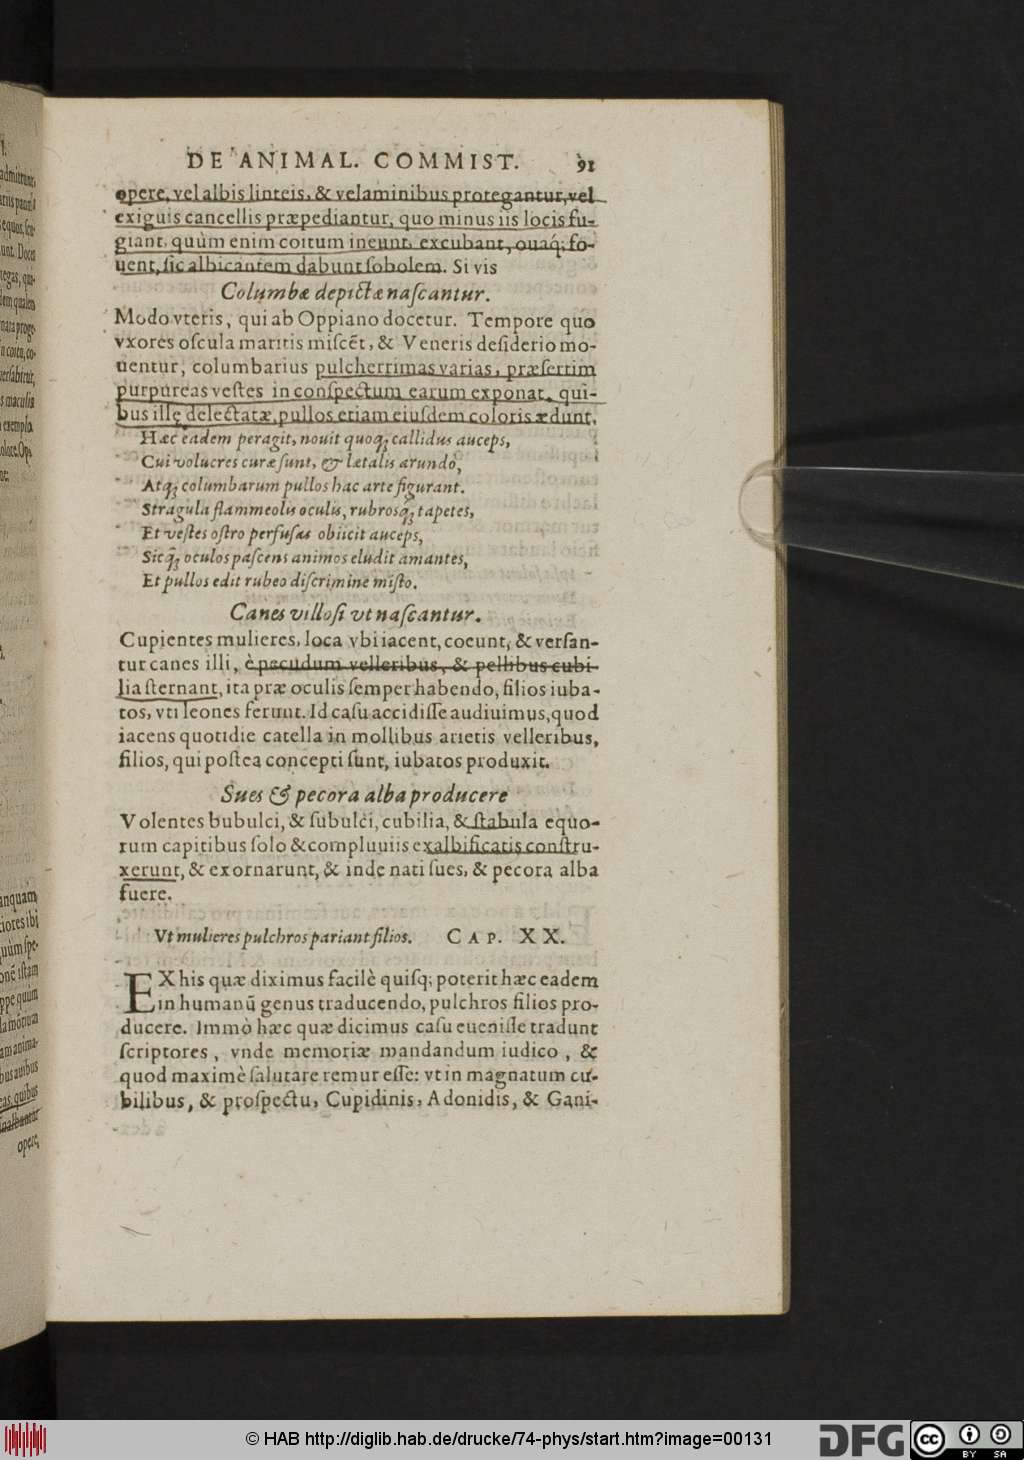 DE ANIMAL. COMMIST. 91
opere, vel albis linteis, & velaminibus protegantur, vel
exiguis cancellis præpediantur, quo minus iis locis fu-
giant, quùm enim coitum ineunt, excubant, ouaq́; fo-
uent, sic albicantem dabunt sobolem. Si vis
Columbæ depictæ nascantur.
Modo vteris, qui ab Oppiano docetur. Tempore quo
vxores oscula maritis miscēt, & Veneris desiderio mo-
uentur, columbarius pulcherrimas varias, præsertim
purpureas vestes in conspectum earum exponat, qui-
bus illę delectatæ, pullos etiam eiusdem coloris ædunt.
Hæc eadem peragit, nouit quoq; callidus auceps,
Cui volucres curæ sunt, & lætalis arundo,
Atq; columbarum pullos hac arte figurant.
Stragula flammeolis oculis, rubrosq; tapetes,
Et vestes ostro perfusas obiicit auceps,
Sicq; oculos pascens animos eludit amantes,
Et pullos edit rubeo discrimine misto.
Canes villosi vt nascantur.
Cupientes mulieres, loca vbi iacent, coeunt, & versan-
tur canes illi, è pecudum velleribus, & pellibus cubi-
lia sternant, ita præ oculis semper habendo, filios iuba-
tos, vti leones ferunt. Id casu accidisse audiuimus, quod
iacens quotidie catella in mollibus arietis velleribus,
filios, qui postea concepti sunt, iubatos produxit.
Sues & pecora alba producere
Volentes bubulci, & subulci, cubilia, & stabula equo-
rum capitibus solo & compluuiis exalbificatis constru-
xerunt, & exornarunt, & inde nati sues, & pecora alba
fuere.
Vt mulieres pulchros pariant filios. CAP. XX.
EX his quæ diximus facilè quisq; poterit hæc eadem
in humanū genus traducendo, pulchros filios pro-
ducere. Immò hæc quæ dicimus casu euenisse tradunt
scriptores, vnde memoriæ mandandum iudico, &
quod maximè salutare remur esse: vt in magnatum cu-
bilibus, & prospectu, Cupidinis, Adonidis, & Gani-
© HAB http://diglib.hab.de/drucke/74-phys/start.htm?image=00131
DFG
cc
BY SA